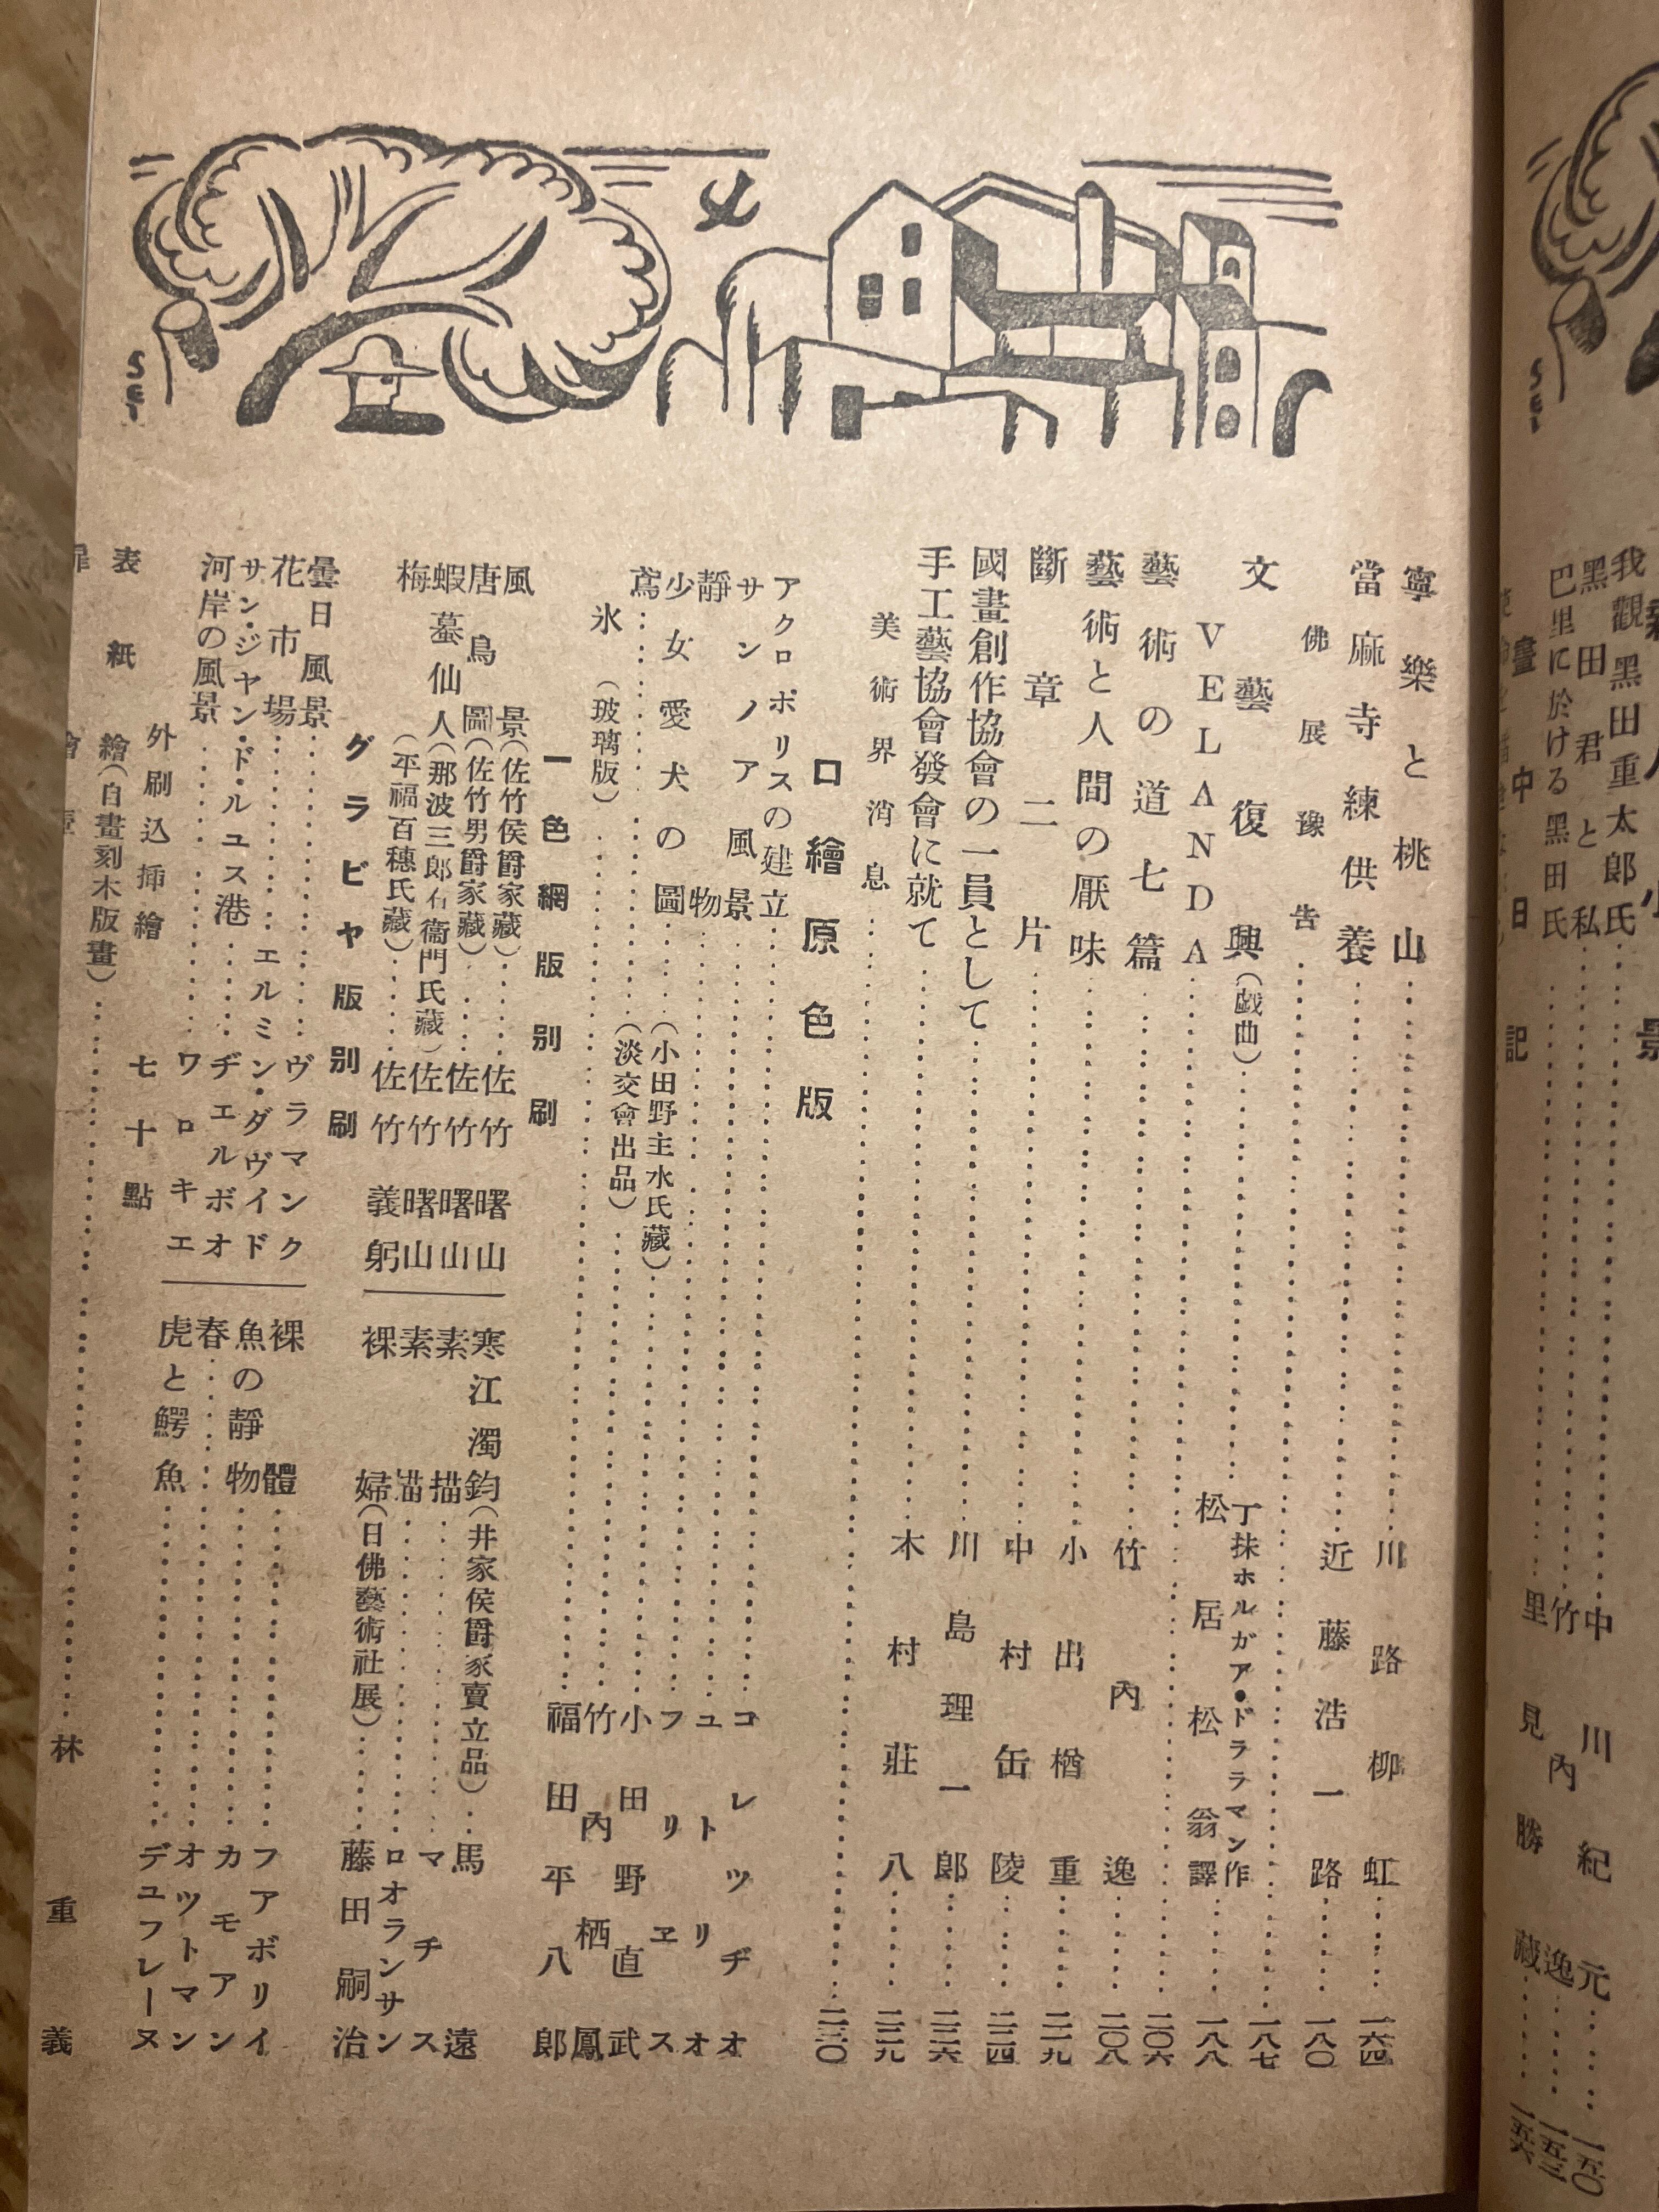 我觀黑田重太郎氏……中川紀元……一五〇
黑田君と私……竹內逸……一五三
巴里に於ける黑田氏……里見勝藏……一五六
畫中日記
寧樂と桃山……川路柳虹……一六四
當麻寺練供養……近藤浩一路……一八〇
佛展豫告……一八七
文藝復興（戯曲）……丁抹ホルガア・ドララマン作 松居松翁譯……一八八
VELANDA……二〇六
藝術の道七篇……竹內逸……二〇八
藝術と人間の厭味……小出楢重……二一九
斷章二片……中村岳陵……二二四
國畫創作協會の一員として……川島理一郎……二二六
手工藝協會發會に就て……木村莊八……二二九
美術界消息……二三〇
口繪原色版
アクロポリスの建立……コレツヂオ
サンノア風景……ユトリリオ
靜物……フリヱス
少女愛犬の圖……（小田野主水氏藏）……小田野直武
鳶……（淡交會出品）……竹內栖鳳
氷（玻璃版）……福田平八郎
一色網版別刷
風景（佐竹侯爵家藏）……佐竹曙山
唐鳥圖（佐竹男爵家藏）……佐竹曙山
蝦蟇仙人（那波三郎右衞門氏藏）佐竹曙山
梅（平福百穗氏藏）……佐竹義躬
寒江濁鈞（井家侯爵家賣立品）……馬遠
素描……マチス
素描……ロオランサン
裸婦（日佛藝術社展）……藤田嗣治
グラビヤ版別刷
曇日風景……ヴラマンク
花市場……エルミン・ダヴイド
サン・ジヤン・ド・ルユス港……ヂエルボオ
河岸の風景……ワロキエ
裸體……フアボリイ
魚の靜物……カモアン
春……オツトマン
虎と鰐魚……デユフレーヌ
外刷込揷繪 七十點
表紙繪（自畫刻木版畫）……林重義
SEI